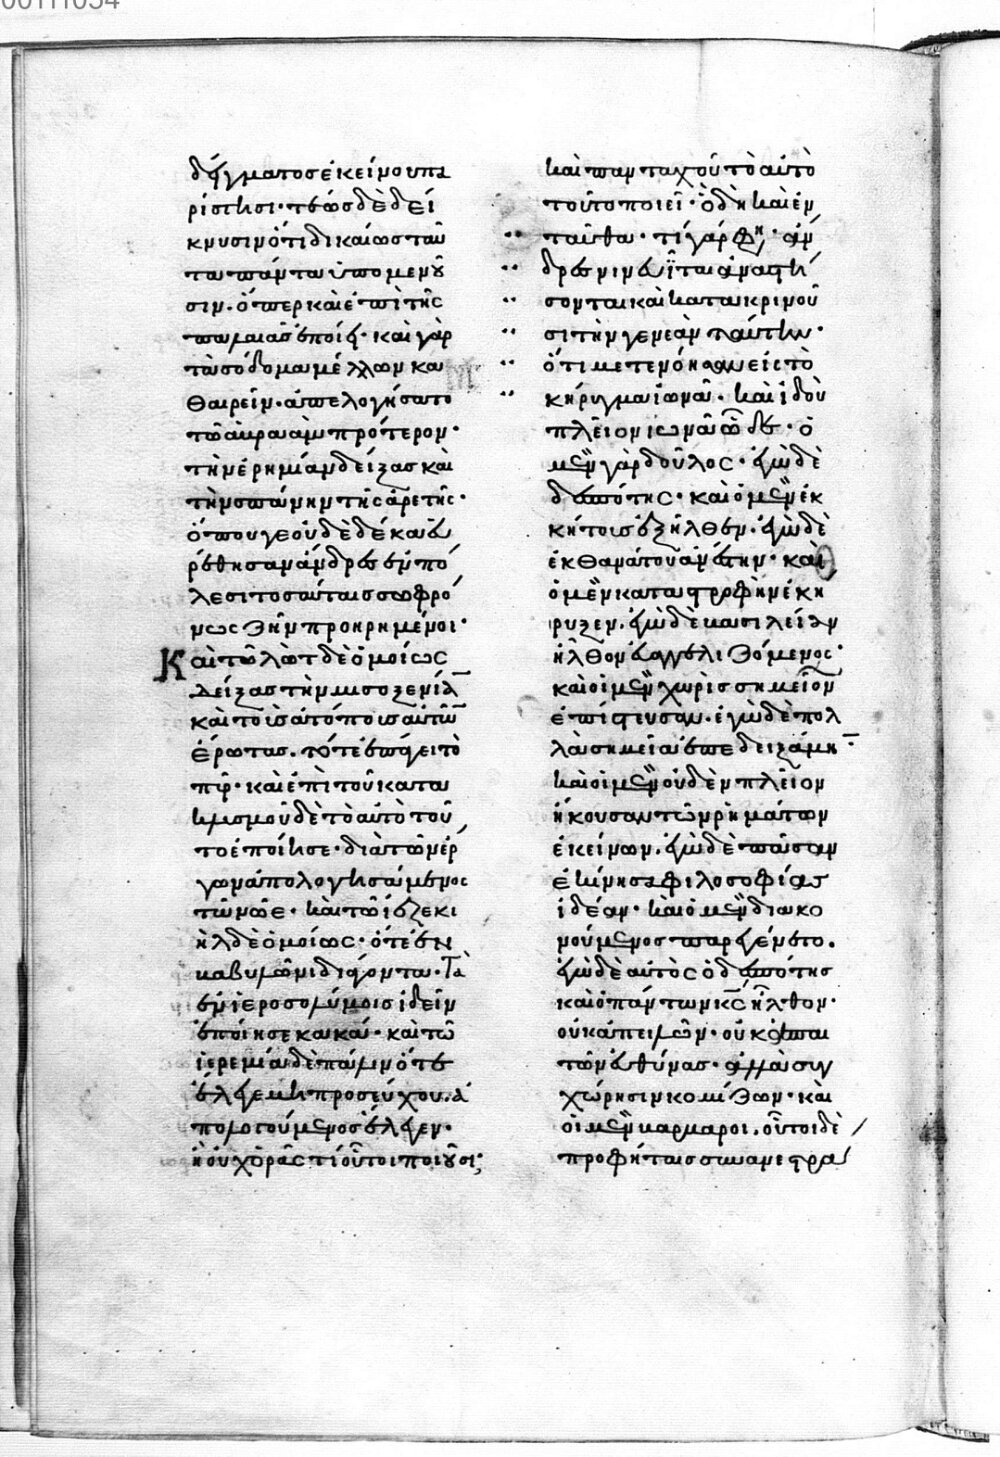 00111054
δείγματος ἐκείνου πα
ρίστησι· τέως δὲ δεί
κνυσιν ὅτι δικαίως ταῦ
τα πάντα ὑπομενοῦ
σιν. ὅπερ καὶ ἐπὶ τῆς
παλαιᾶς ἐποίει· καὶ γὰρ
τὰ σόδομα μέλλων κα
θαιρεῖν· ἀπελογήσατο
τῶ ἀβραὰμ πρότερον·
τὴν ἐρημίαν δείξας καὶ
τὴν σπάνην τῆς ἀρετῆς·
ὅπου γε οὐδὲ δέκα εὑ
ρέθησαν ἄνδρες ἐν πό
λεσι τοσαύταις σωφρό
νως ζῆν προηρημένοι·
Καὶ τῶ λὼτ δὲ ὁμοίως
δείξας τὴν μισοξενίαν
καὶ τοὺς ἀτόπους αὐτῶν
ἔρωτας. τότε ἐπάγει τὸ
πῦρ· καὶ ἐπὶ τοῦ κατα
κλυσμοῦ δὲ τὸ αὐτὸ τοῦ
το ἐποίησε· διὰ τῶν ἔρ
γων ἀπολογησάμενος
τῶ νῶε· καὶ τῶ ἰεζεκι
ὴλ δὲ ὁμοίως· ὅτε ἐν
βαβυλῶνι διάγοντα· τὰ
ἐν ἱεροσολύμοις ἰδεῖν
ἐποίησε κακά· καὶ τῶ
ἱερεμία δὲ πάλιν ὅτε
ἔλεγε μὴ προσεύχου. ἀ
πολογούμενος ἔλεγεν·
ἢ οὐχ ὁρᾶς τί οὗτοι ποιοῦσι;
καὶ πανταχοῦ τὸ αὐτὸ
τοῦτο ποιεῖ· ὃ δὴ καὶ ἐν
ταῦθα· τί γάρ φησιν· ἄν
δρες νινευῖται ἀναστή
σονται καὶ κατακρινοῦ
σι τὴν γενεὰν ταύτην·
ὅτι μετενόησαν εἰς τὸ
κήρυγμα ἰωνᾶ. καὶ ἰδοὺ
πλεῖον ἰωνᾶ ὧδε· ὁ
μὲν γὰρ δοῦλος· ἐγὼ δὲ
δεσπότης· καὶ ὁ μὲν ἐκ
κήτους ἐξῆλθεν. ἐγὼ δὲ
ἐκ θανάτου ἀνέστην· καὶ
ὁ μὲν καταστροφὴν ἐκή
ρυξεν. ἐγὼ δὲ βασιλείαν
ἦλθον εὐαγγελιζόμενος·
καὶ οἱ μὲν χωρὶς σημείων
ἐπίστευσαν. ἐγὼ δὲ πολ
λὰ σημεῖα ἐπεδειξάμην
καὶ οἱ μὲν οὐδὲν πλεῖον
ἤκουσαν τῶν ῥημάτων
ἐκείνων. ἐγὼ δὲ πᾶσαν
ἐκίνησα φιλοσοφίας
ἰδέαν· καὶ ὁ μὲν διακο
νούμενος παρεγένετο.
ἐγὼ δὲ αὐτὸς ὁ δεσπότης
καὶ ὁ πάντων κς ἦλθον·
οὐκ ἀπειλῶν· οὐκ ἀπαι
τῶν εὐθύνας· ἀλλὰ συγ
χώρησιν κομίζων· καὶ
οἱ μὲν βάρβαροι. οὗτοι δὲ
προφήταις συνανεστρά